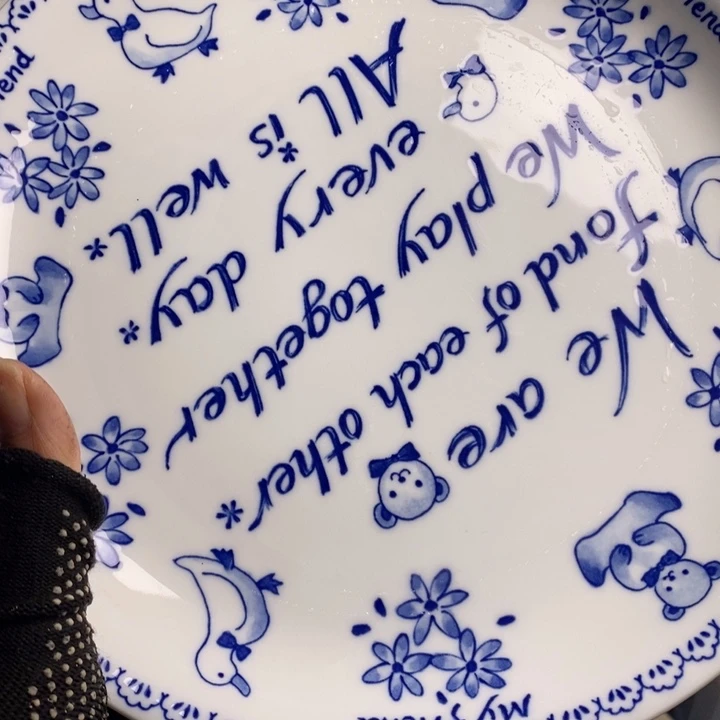 We are
fond of each other*
We play together
every day*
All is well*
My